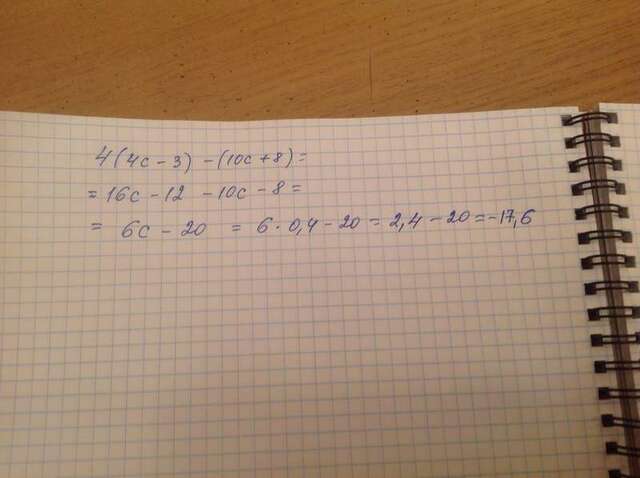 4(4c-3) -(10c+8)=
=16c-12 -10c-8=
= 6c-20 = 6·0,4-20=2,4-20=-17,6